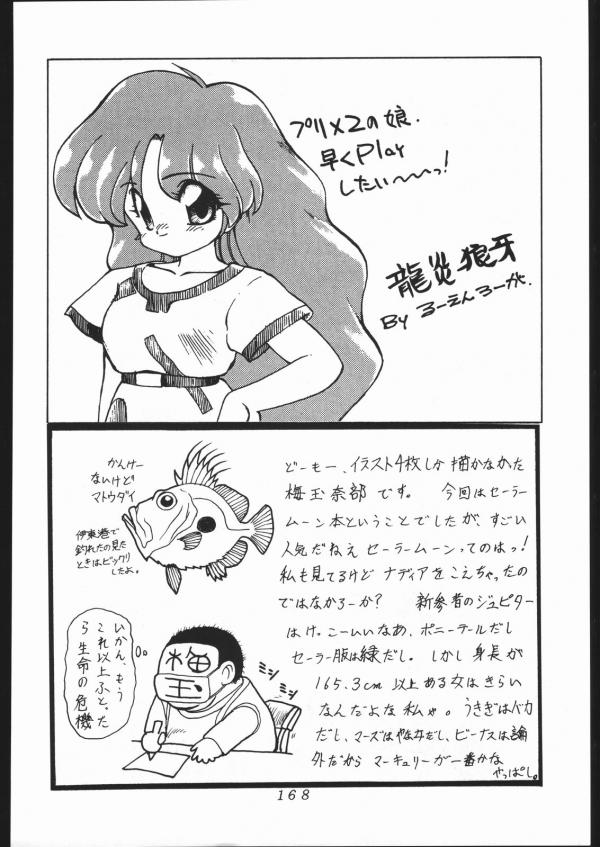 プリメ2の娘.
早くPlay
したい〜〜っ!
龍炎狼牙
By るーえんろーが.
かんけー
ないけど
マトウダイ
伊東港で
釣れたの見た
ときはビックリ
したよ。
いかん、もう
これ以上ふとった
ら生命の危機
梅
玉
ミシ
ミシ
どーも、イラスト4枚しか描かなかた
梅玉奈部です。 今回はセーラー
ムーン本ということでしたが、すごい
人気だねえ セーラームーンってのはっ!
私も見てるけど ナディアをこえちゃったの
ではなかろーか? 新参者のジュピター
はけっこーいいなあ、ポニーテールだし
セーラー服は緑だし。しかし身長が
165.3cm以上ある女はきらい
なんだよな私ゃ。うさぎはバカ
だし、マーズはやな女だし、ビーナスは論
外だから マーキュリーが一番かな
やっぱし。
168